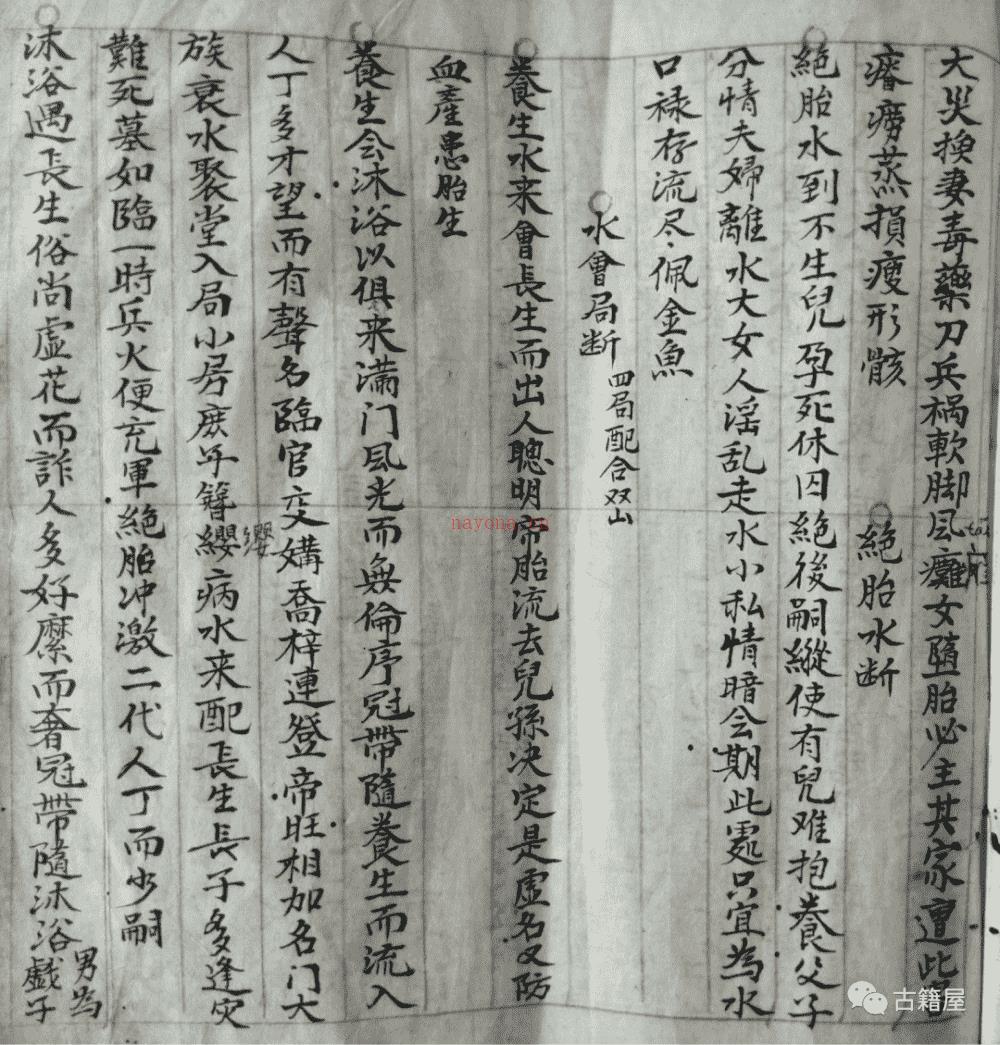 大災換妻毒藥刀兵禍軟脚风癱女墮胎必主其家遭此
瘠癆蒸損瘦形骸
絕胎水断
絕胎水到不生兒孕死休囚絕後嗣縱使有兒难抱養父子
分情夫婦離水大女人淫乱走水小私情暗会期此處只宜為水
口禄存流尽佩金魚
水會局断 四局配合双山
養生水来會長生而出人聰明帝胎流去兒孫决定是虛名又防
血產患胎生
養生会沐浴以俱来满门风光而無倫序冠帶隨養生而流入
人丁多才望而有聲名臨官交媾喬梓連登帝旺相加名门大
族衰水聚堂入局小房庶年簪纓病水来配長生長子多逢灾
纓
難死墓如臨一時兵火便充軍絕胎冲激二代人丁而少嗣
沐浴遇長生俗尚虛花而詐人多好縻而奢冠帶隨沐浴男為戲子
nayona.cn
古籍屋